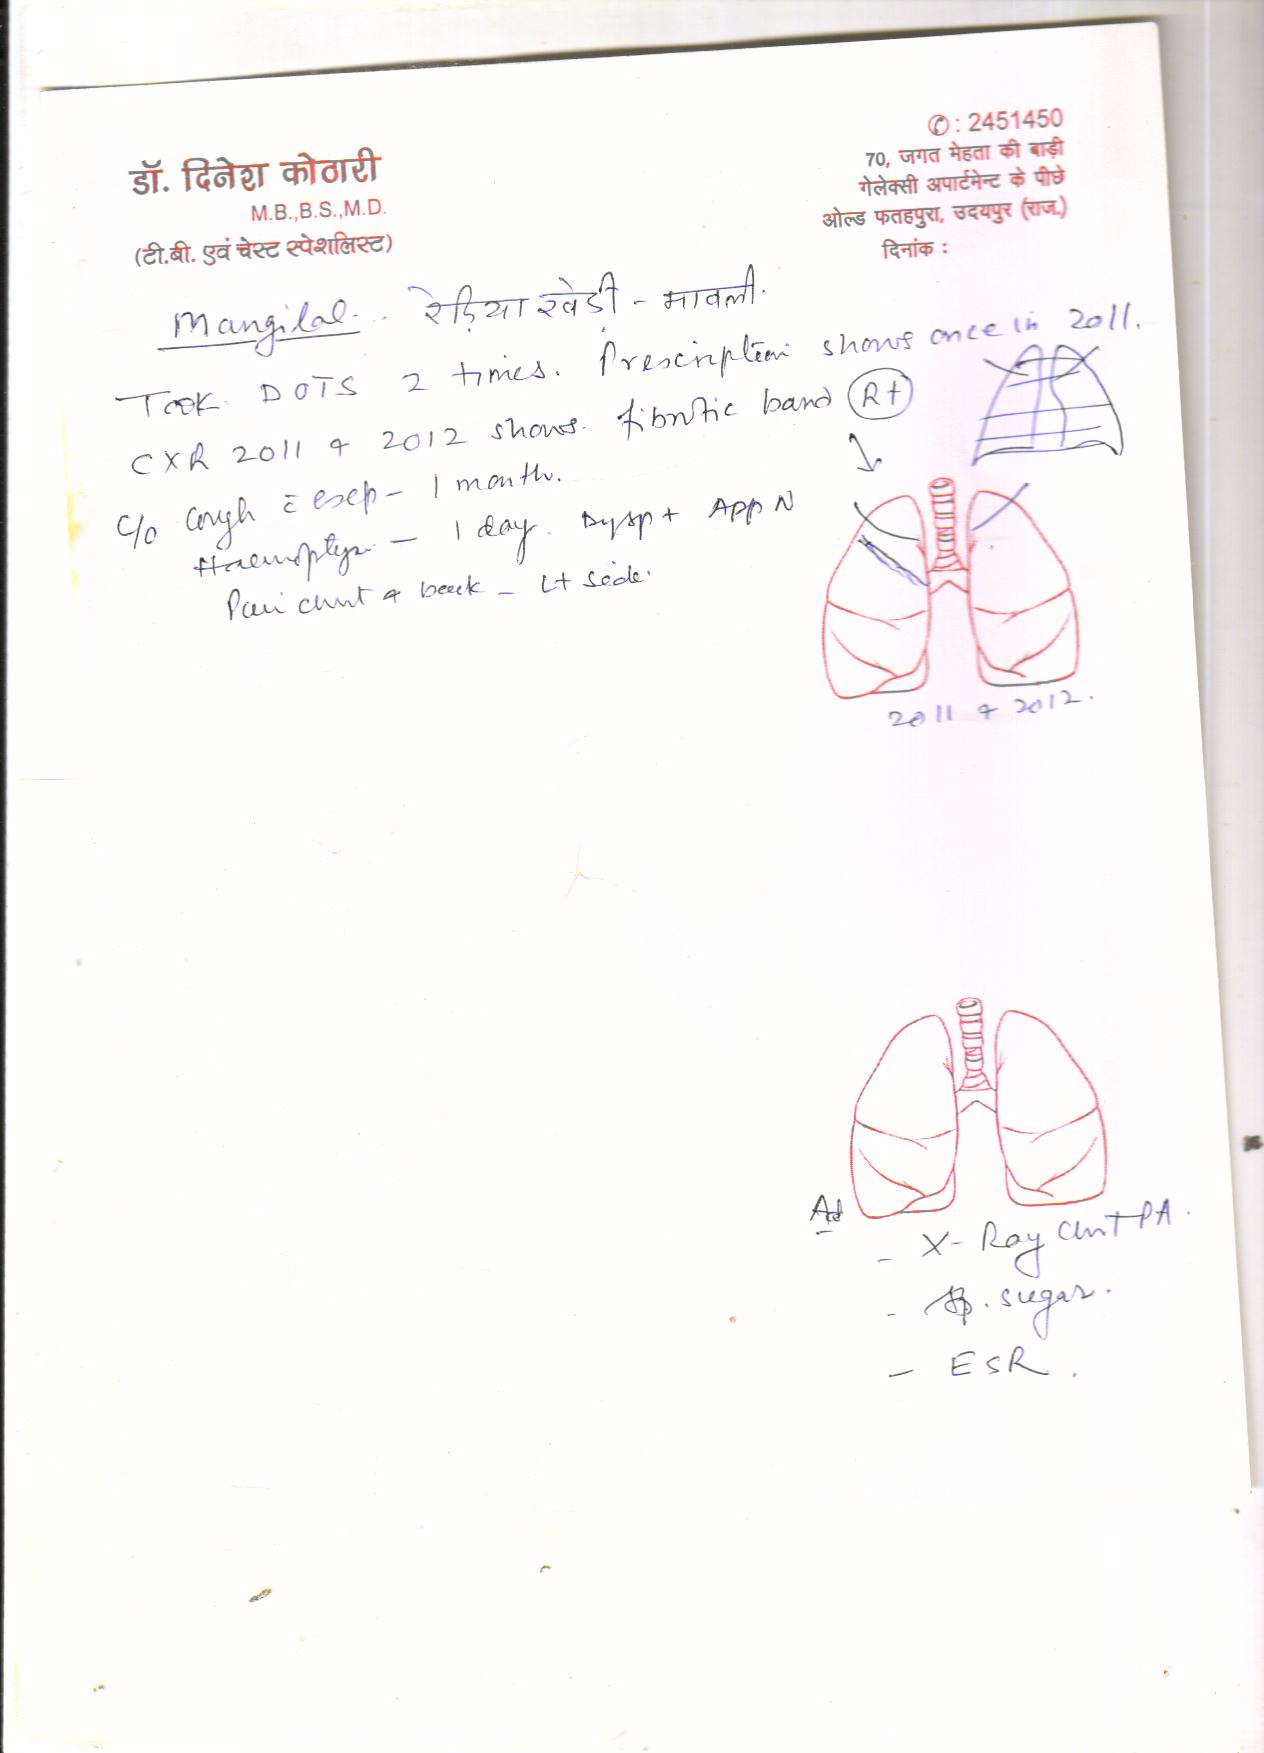 डॉ. दिनेश कोठारी
M.B.,B.S.,M.D.
(टी.बी. एवं चेस्ट स्पेशलिस्ट)
✆ : 2451450
70, जगत मेहता की बाड़ी
गेलेक्सी अपार्टमेन्ट के पीछे
ओल्ड फतहपुरा, उदयपुर (राज.)
दिनांक :
Mangilal - रेड़िया खेडी - मावली.
Took DOTS 2 times. Prescription shows once in 2011.
CXR 2011 & 2012 shows fibrotic band Rt
C/o Cough c̄ - 1 month.
Haemoptysis - 1 day. Dysp + App N
Pain chest & back - Lt side.
2011 & 2012.
Ad
- X-Ray Chest PA.
- . Sugar.
- ESR.